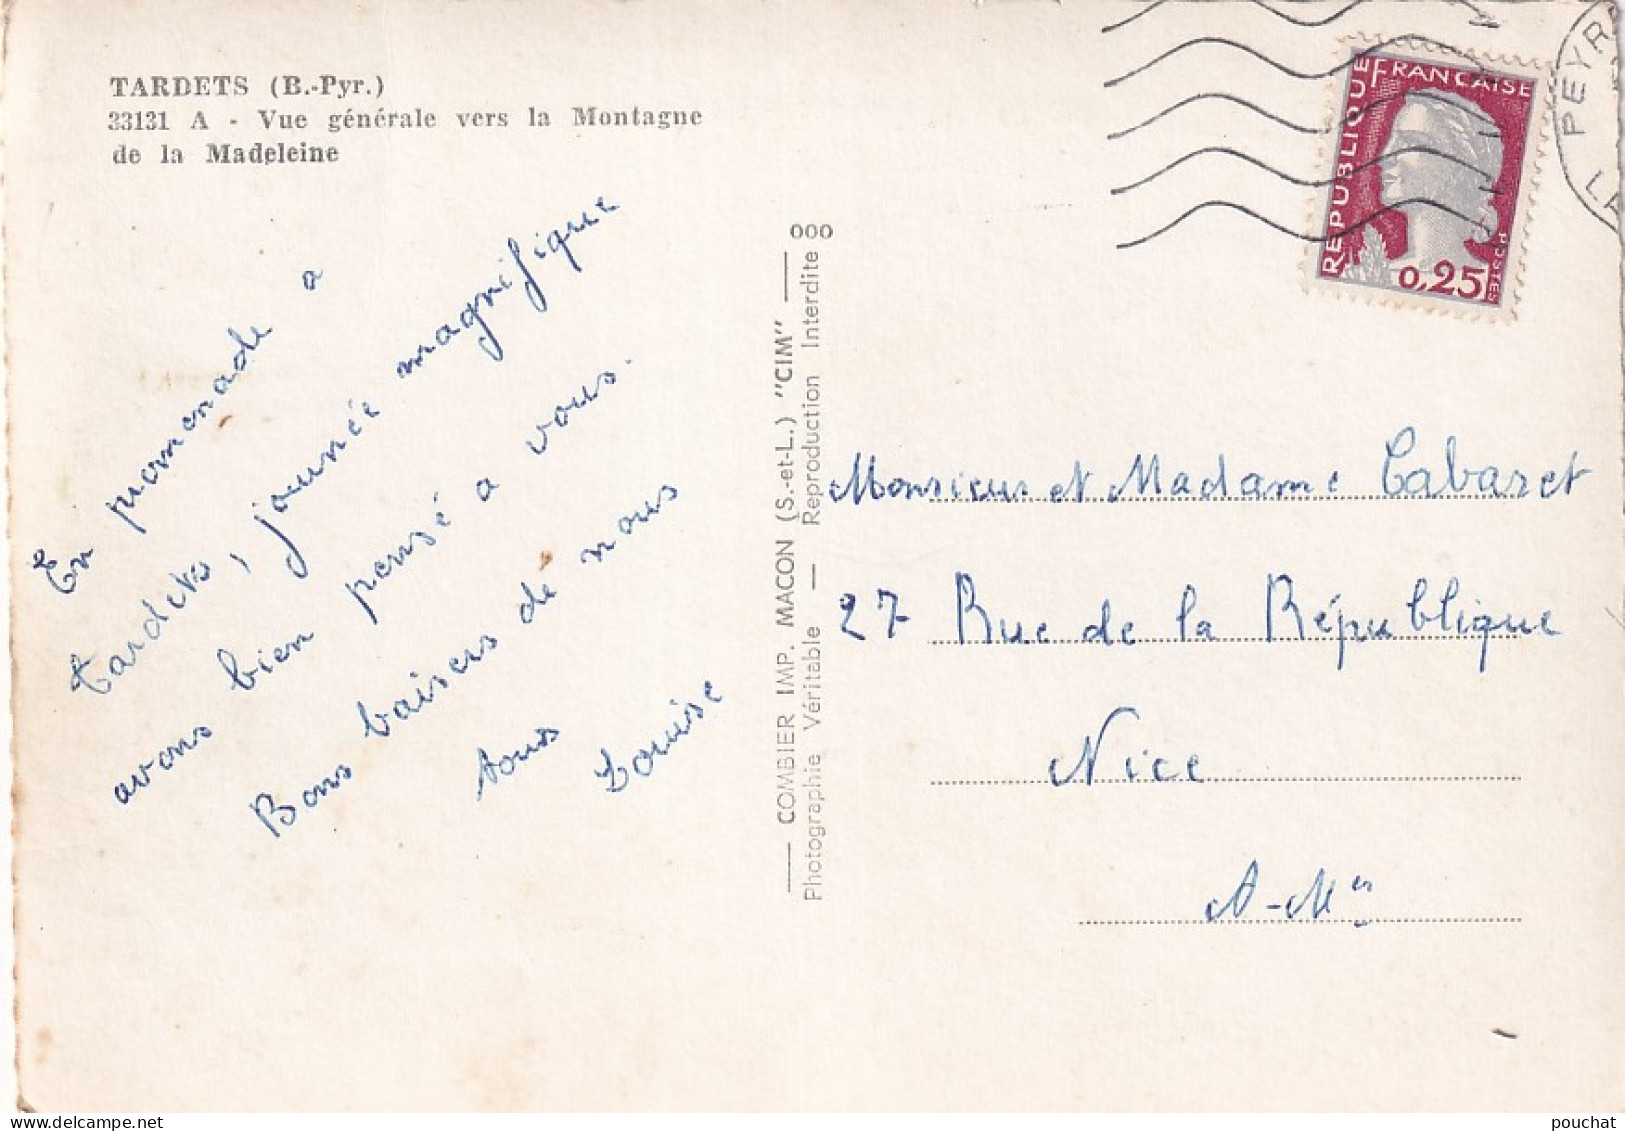 TARDETS (B.-Pyr.)
33131 A - Vue générale vers la Montagne
de la Madeleine
En promenade a
tardets, journée magnifique
avons bien pensé a vous.
Bons baisers de nous
tous
Louise
COMBIER IMP. MACON (S.-et-L.) "CIM"
Photographie Véritable — Reproduction Interdite
000
REPUBLIQUE
FRANÇAISE
0,25
PEYR
LA
Monsieur et Madame Cabaret
27 Rue de la République
Nice
A-Mes
pouchat